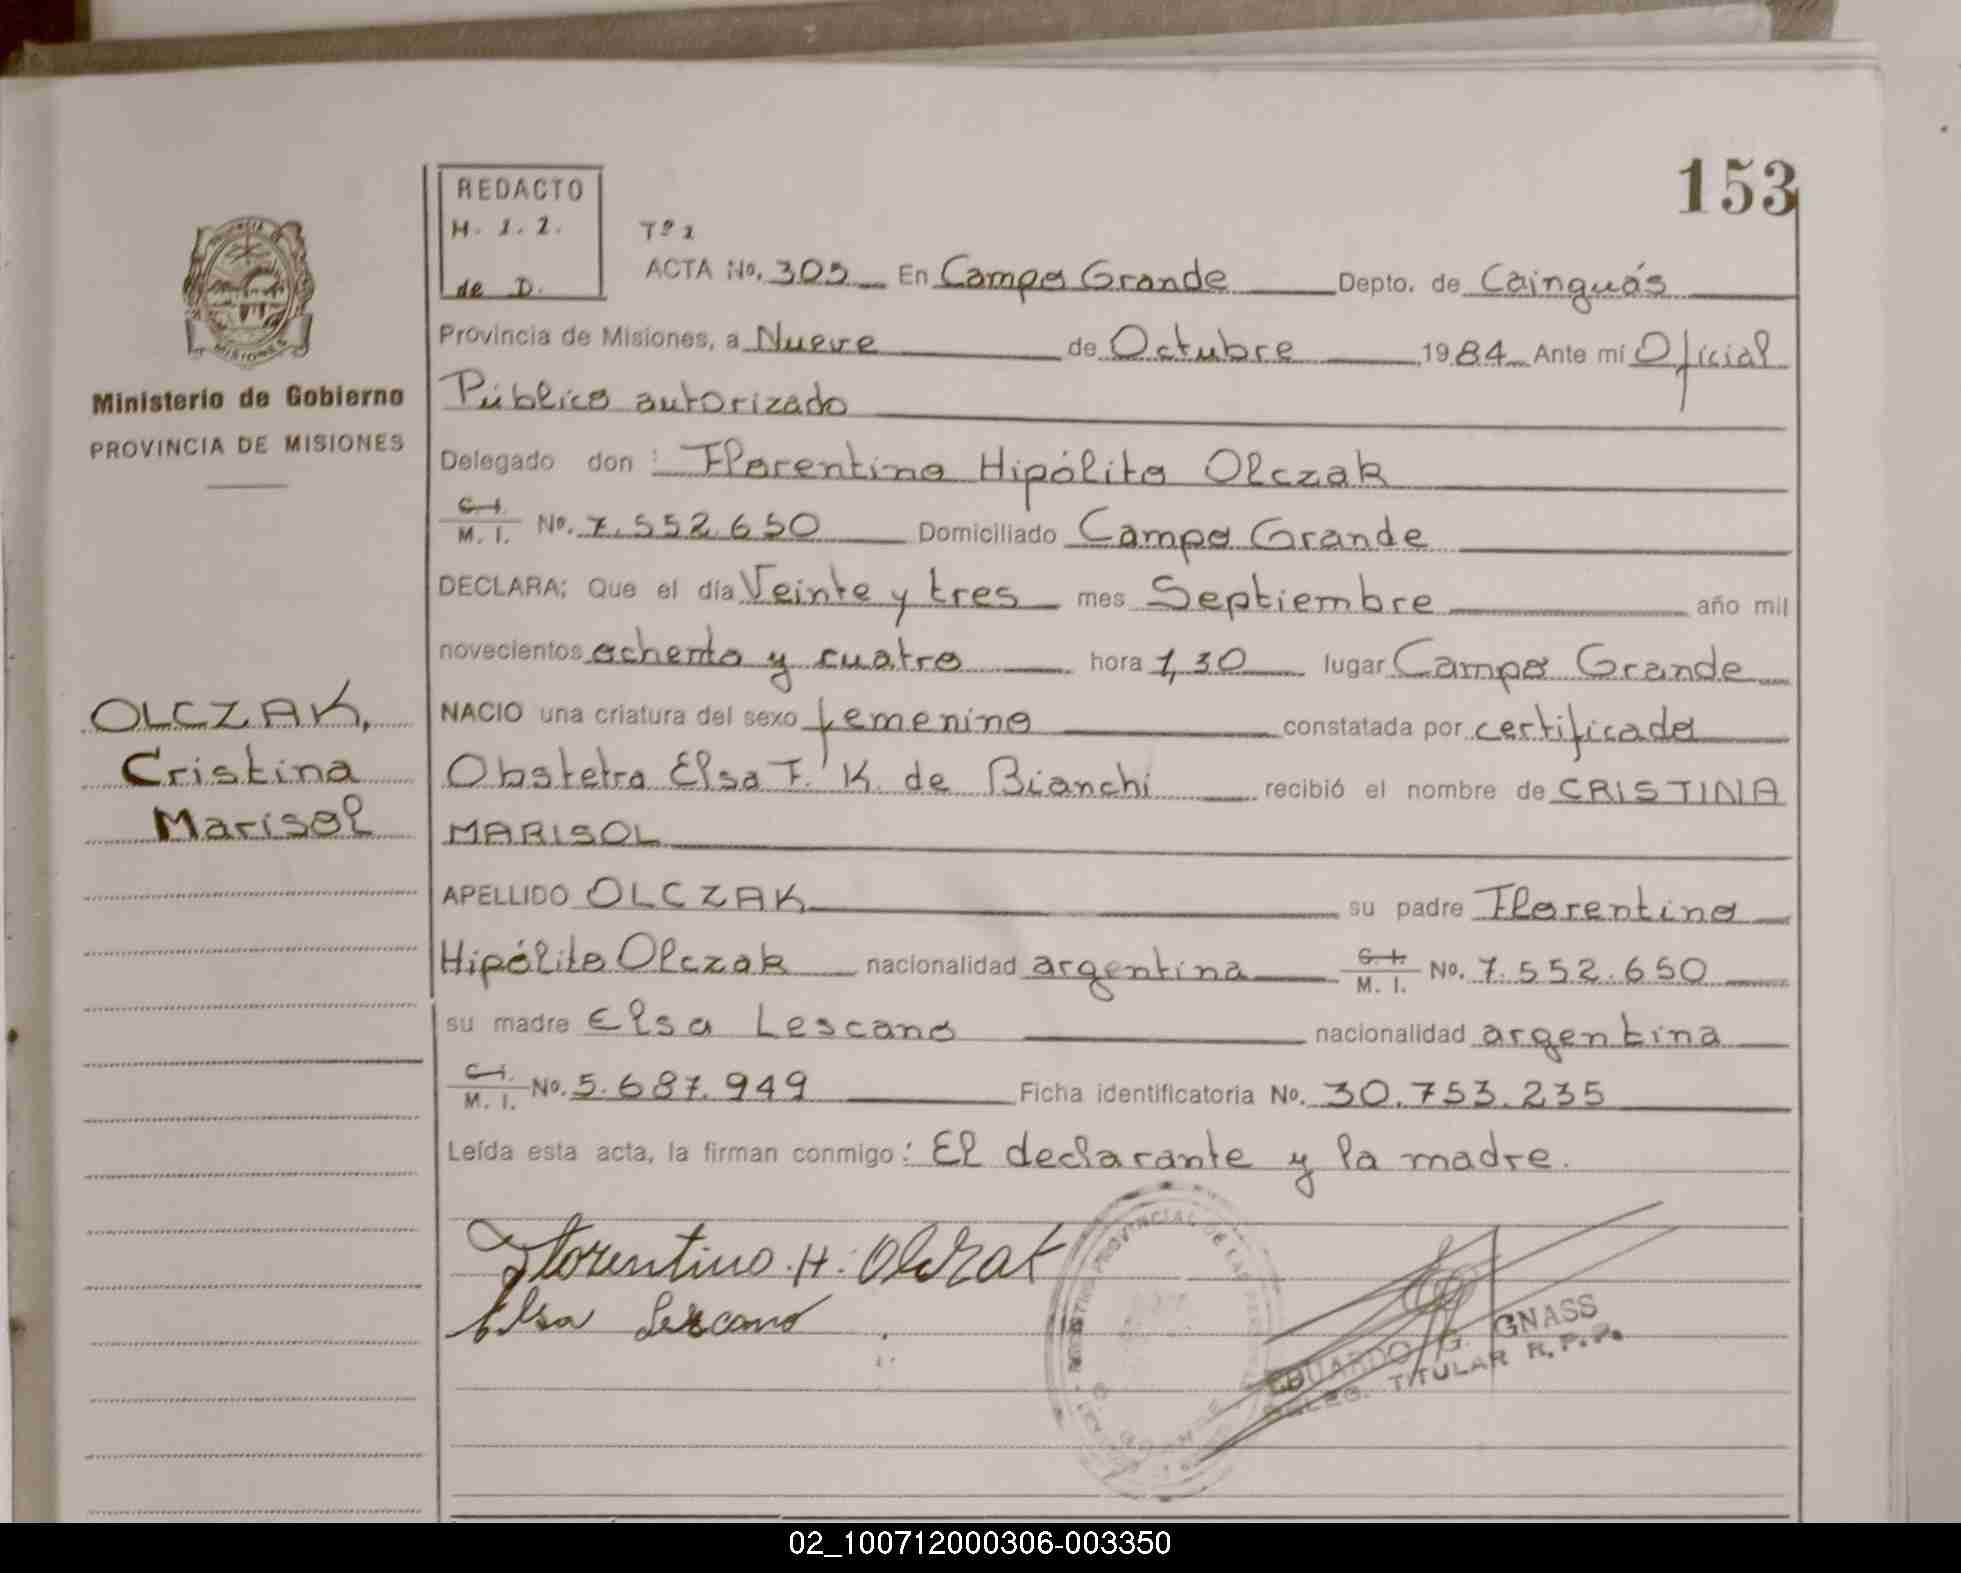 153
REDACTO
H. 1. 2.
de D.
Tº 1
ACTA No. 305 En Campo Grande Depto. de Cainguás
Provincia de Misiones, a Nueve de Octubre 1984 Ante mí Oficial
Público autorizado
Ministerio de Gobierno
PROVINCIA DE MISIONES
MISIONES
Delegado don : Florentino Hipólito Olczak
C. I.
M. I. No. 7.552.650 Domiciliado Campo Grande
DECLARA; Que el día Veinte y tres mes Septiembre año mil
novecientos ochenta y cuatro hora 1,30 lugar Campo Grande
OLCZAK,
Cristina
Marisol
NACIO una criatura del sexo femenino constatada por certificado
Obstetra Elsa F. K. de Bianchi recibió el nombre de CRISTINA
MARISOL
APELLIDO OLCZAK su padre Florentino
Hipólito Olczak nacionalidad argentina C. I. M. I. No. 7.552.650
su madre Elsa Lescano nacionalidad argentina
C. I.
M. I. No. 5.687.949 Ficha identificatoria No. 30.753.235
Leída esta acta, la firman conmigo : El declarante y la madre.
Florentino. H. Olczak
Elsa Lescano
PROVINCIAL DE LAS
EDUARDO G. GNASS
DELEG. TITULAR R.P.P.
02_100712000306-003350